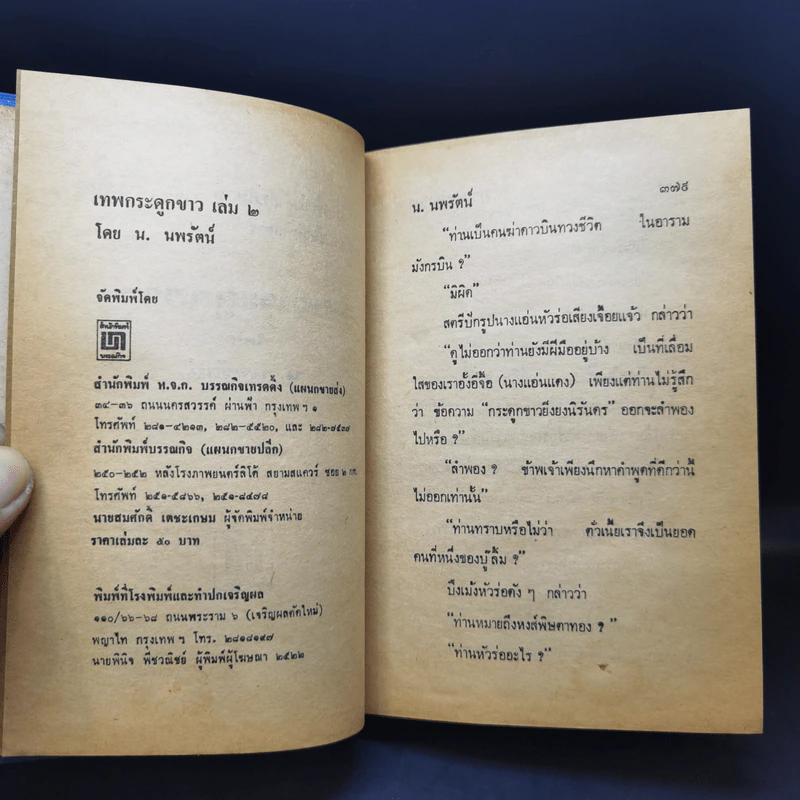 เทพกระดูกขาว เล่ม ๒
โดย น. นพรัตน์
จัดพิมพ์โดย
สำนักพิมพ์ ห.จ.ก. บรรณกิจเทรดดิ้ง (แผนกขายส่ง)
๓๔-๓๖ ถนนนครสวรรค์ ผ่านฟ้า กรุงเทพฯ ๑
โทรศัพท์ ๒๘๑-๔๒๑๓, ๒๘๒-๕๕๒๐, และ ๒๘๒-๗๕๓๗
สำนักพิมพ์บรรณกิจ (แผนกขายปลีก)
๒๕๐-๒๕๒ หลังโรงภาพยนตร์ลิโด้ สยามสแควร์ ซอย ๒ กท.
โทรศัพท์ ๒๕๑-๕๘๖๖, ๒๕๑-๘๔๗๘
นายสมศักดิ์ เตชะเกษม ผู้จัดพิมพ์จำหน่าย
ราคาเล่มละ ๕๐ บาท
พิมพ์ที่โรงพิมพ์และทำปกเจริญผล
๑๑๐/๖๖-๖๘ ถนนพระราม ๖ (เจริญผลตัดใหม่)
พญาไท กรุงเทพฯ โทร. ๒๘๑๘๑๙๗
นายพินิจ พี่ชวณิชย์ ผู้พิมพ์ผู้โฆษณา ๒๕๒๒
น. นพรัตน์ ๓๗๙
“ท่านเป็นคนฆ่าดาวบินทวงชีวิต ในอาราม
มังกรบิน ?”
“มิผิด”
สตรีปักรูปนางแอ่นหัวร่อเสียงเจื้อยแจ้ว กล่าวว่า
“ดูไม่ออกว่าท่านยังมีฝีมืออยู่บ้าง เป็นที่เลื่อม
ใสของเราอั้งอี่จื้อ (นางแอ่นแดง) เพียงแต่ท่านไม่รู้สึก
ว่า ข้อความ “กระดูกขาวยิ่งยงนิรันดร” ออกจะลำพอง
ไปหรือ ?”
“ลำพอง ? ข้าพเจ้าเพียงนึกหาคำพูดที่ดีกว่านี้
ไม่ออกเท่านั้น”
“ท่านทราบหรือไม่ว่า ตัวเนี้ยเราจึงเป็นยอด
คนที่หนึ่งของบู๊ลิ้ม ?”
บึงเม้งหัวร่อดัง ๆ กล่าวว่า
“ท่านหมายถึงหงส์พิษดาทอง ?”
“ท่านหัวร่ออะไร ?”